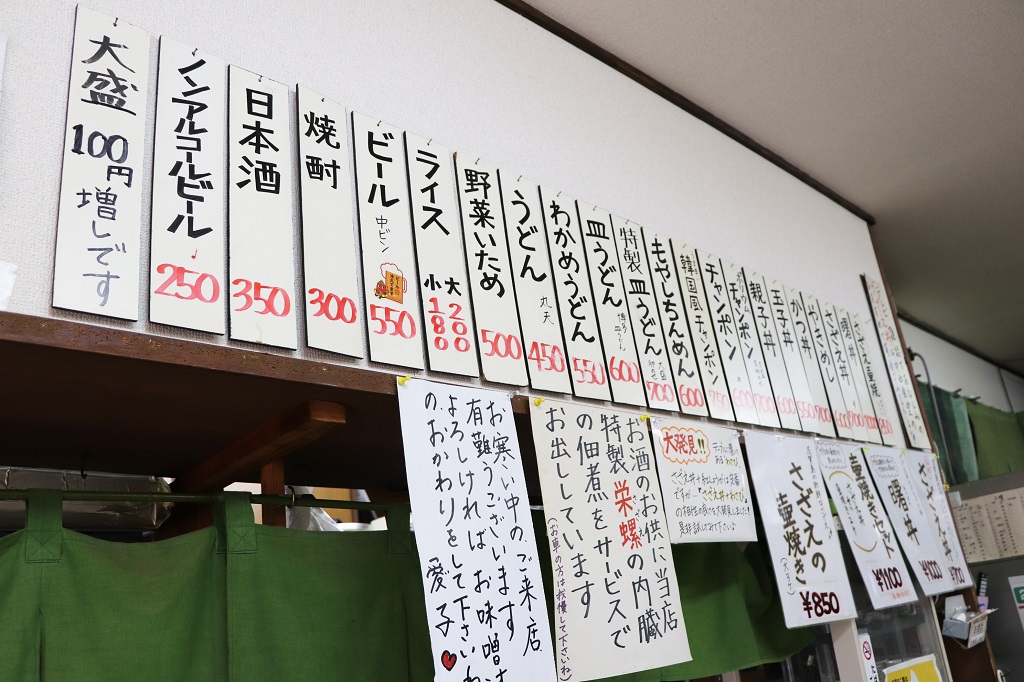 大盛
100円
増しです
ノンアルコールビール
250
日本酒
350
焼酎
300
ビール
中ビン
550
ライス
大 200
小 180
野菜いため
500
うどん
丸天
450
わかめうどん
550
皿うどん
600
特製皿うどん
700
もやしちゃんめん
600
韓国風チャンポン
750
チャンポン
600
チャンポン
700
親子丼
600
玉子丼
550
かつ丼
やきめし
600
さざえ丼
曙丼
さざえ壷焼
お寒い中のご来店
有難うございます
よろしければお味噌汁
のおかわりをして下さいね
愛子
お酒のお供に当店
特製栄螺の内臓
の佃煮をサービスで
お出ししています
(お車の方は我慢して下さいね)
大発見!!
さざえの
壷焼き
¥850
壷焼きセット
¥1100
曙丼
¥1000
チャンポン